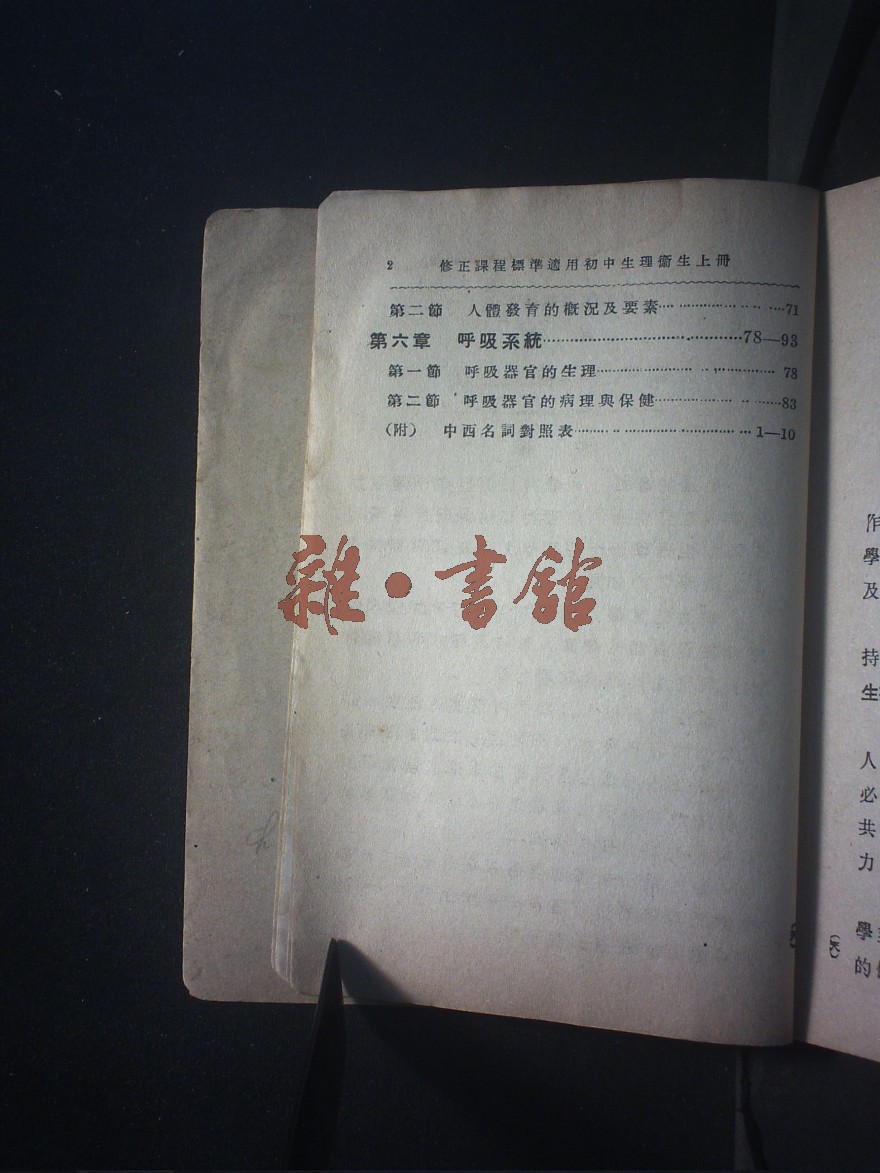 2 修正課程標準適用初中生理衞生上冊
第二節 人體發育的概況及要素…………………71
第六章 呼吸系統…………………………78—93
第一節 呼吸器官的生理…………………………78
第二節 呼吸器官的病理與保健…………………83
(附) 中西名詞對照表…………………………1—10
雜·書館
學
及
持
生
人
必
共
力
學
的